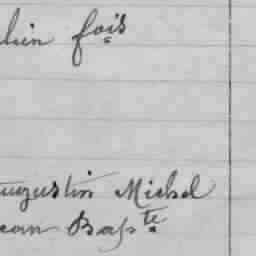 lien fois
Augustin Michel
Jean Bapte